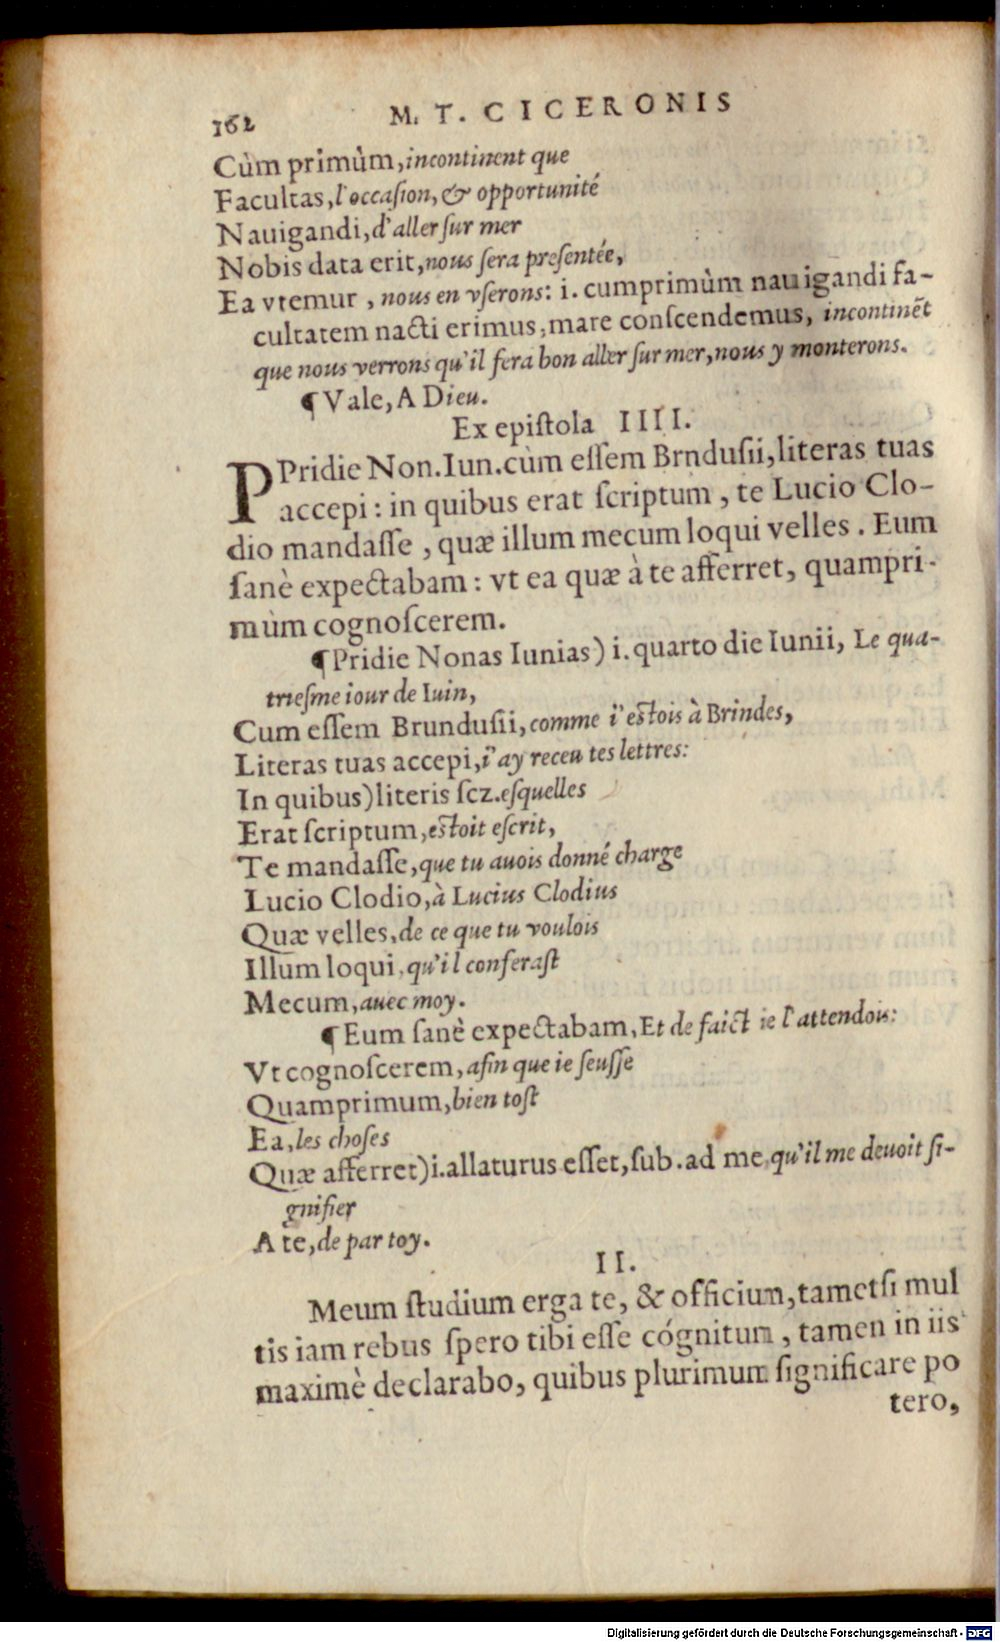 162 M. T. CICERONIS
Cùm primùm, incontinent que
Facultas, l'occasion, & opportunité
Nauigandi, d'aller sur mer
Nobis data erit, nous sera presentée,
Ea vtemur, nous en vserons: i. cumprimùm nauigandi fa-
cultatem nacti erimus, mare conscendemus, incontinẽt
que nous verrons qu'il fera bon aller sur mer, nous y monterons.
¶ Vale, A Dieu.
Ex epistola IIII.
PPridie Non. Iun. cùm essem Brndusii, literas tuas
accepi: in quibus erat scriptum, te Lucio Clo-
dio mandasse, quæ illum mecum loqui velles. Eum
sanè expectabam: vt ea quæ à te afferret, quampri-
mùm cognoscerem.
¶ Pridie Nonas Iunias) i. quarto die Iunii, Le qua-
triesme iour de Iuin,
Cum essem Brundusii, comme i'estois à Brindes,
Literas tuas accepi, i'ay receu tes lettres:
In quibus) literis scz. esquelles
Erat scriptum, estoit escrit,
Te mandasse, que tu auois donné charge
Lucio Clodio, à Lucius Clodius
Quæ velles, de ce que tu voulois
Illum loqui, qu'il conferast
Mecum, auec moy.
¶ Eum sanè expectabam, Et de faict ie l'attendois:
Vt cognoscerem, afin que ie seusse
Quamprimum, bien tost
Ea, les choses
Quæ afferret) i. allaturus esset, sub. ad me, qu'il me deuoit si-
gnifier
A te, de par toy.
II.
Meum studium erga te, & officium, tametsi mul
tis iam rebus spero tibi esse cógnitum, tamen in iis
maximè declarabo, quibus plurimum significare po
tero,
Digitalisierung gefördert durch die Deutsche Forschungsgemeinschaft - DFG